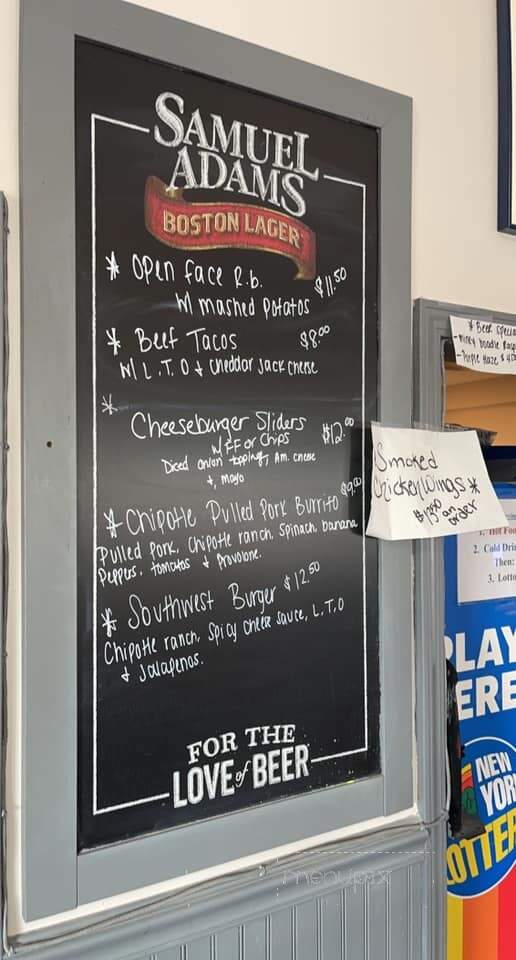 SAMUEL
ADAMS
BOSTON LAGER
* Open Face R.b. $11.50
w/ mashed potatos
* Beef Tacos $8.00
w/ L.T.O & cheddar Jack cheese
*
Cheeseburger Sliders $12.00
w/ FF or Chips
Diced onion topping, Am. cheese
&, mayo
* Chipotle Pulled Pork Burrito $9.00
Pulled Pork, Chipotle ranch, Spinach, banana
Peppers, tomatos & Provolone.
* Southwest Burger $12.50
Chipotle ranch, Spicy Cheese sauce, L.T.O
& Jalapenos.
FOR THE
LOVE of BEER
Smoked
Chicken Wings *
an
order
* Beer Specia
- Purple Haze $
1. Hot Foo
2. Cold Dri
Then:
3. Lotto
PLAY
ERE
NEW
YOR
OTTE
menupix